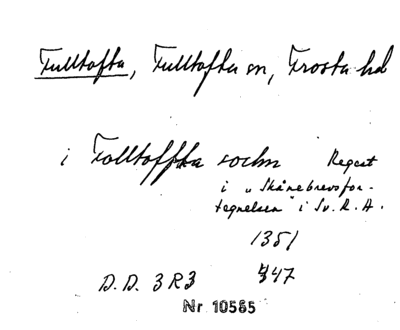 Fulltofta, Fulltofta sn, Frosta hd
i Folltoffta sochn Regest
i „Skånebrevsfor-
tegnelsen" i Sv. R. A.
1351
D.D. 3 R 3 447
Nr 10585